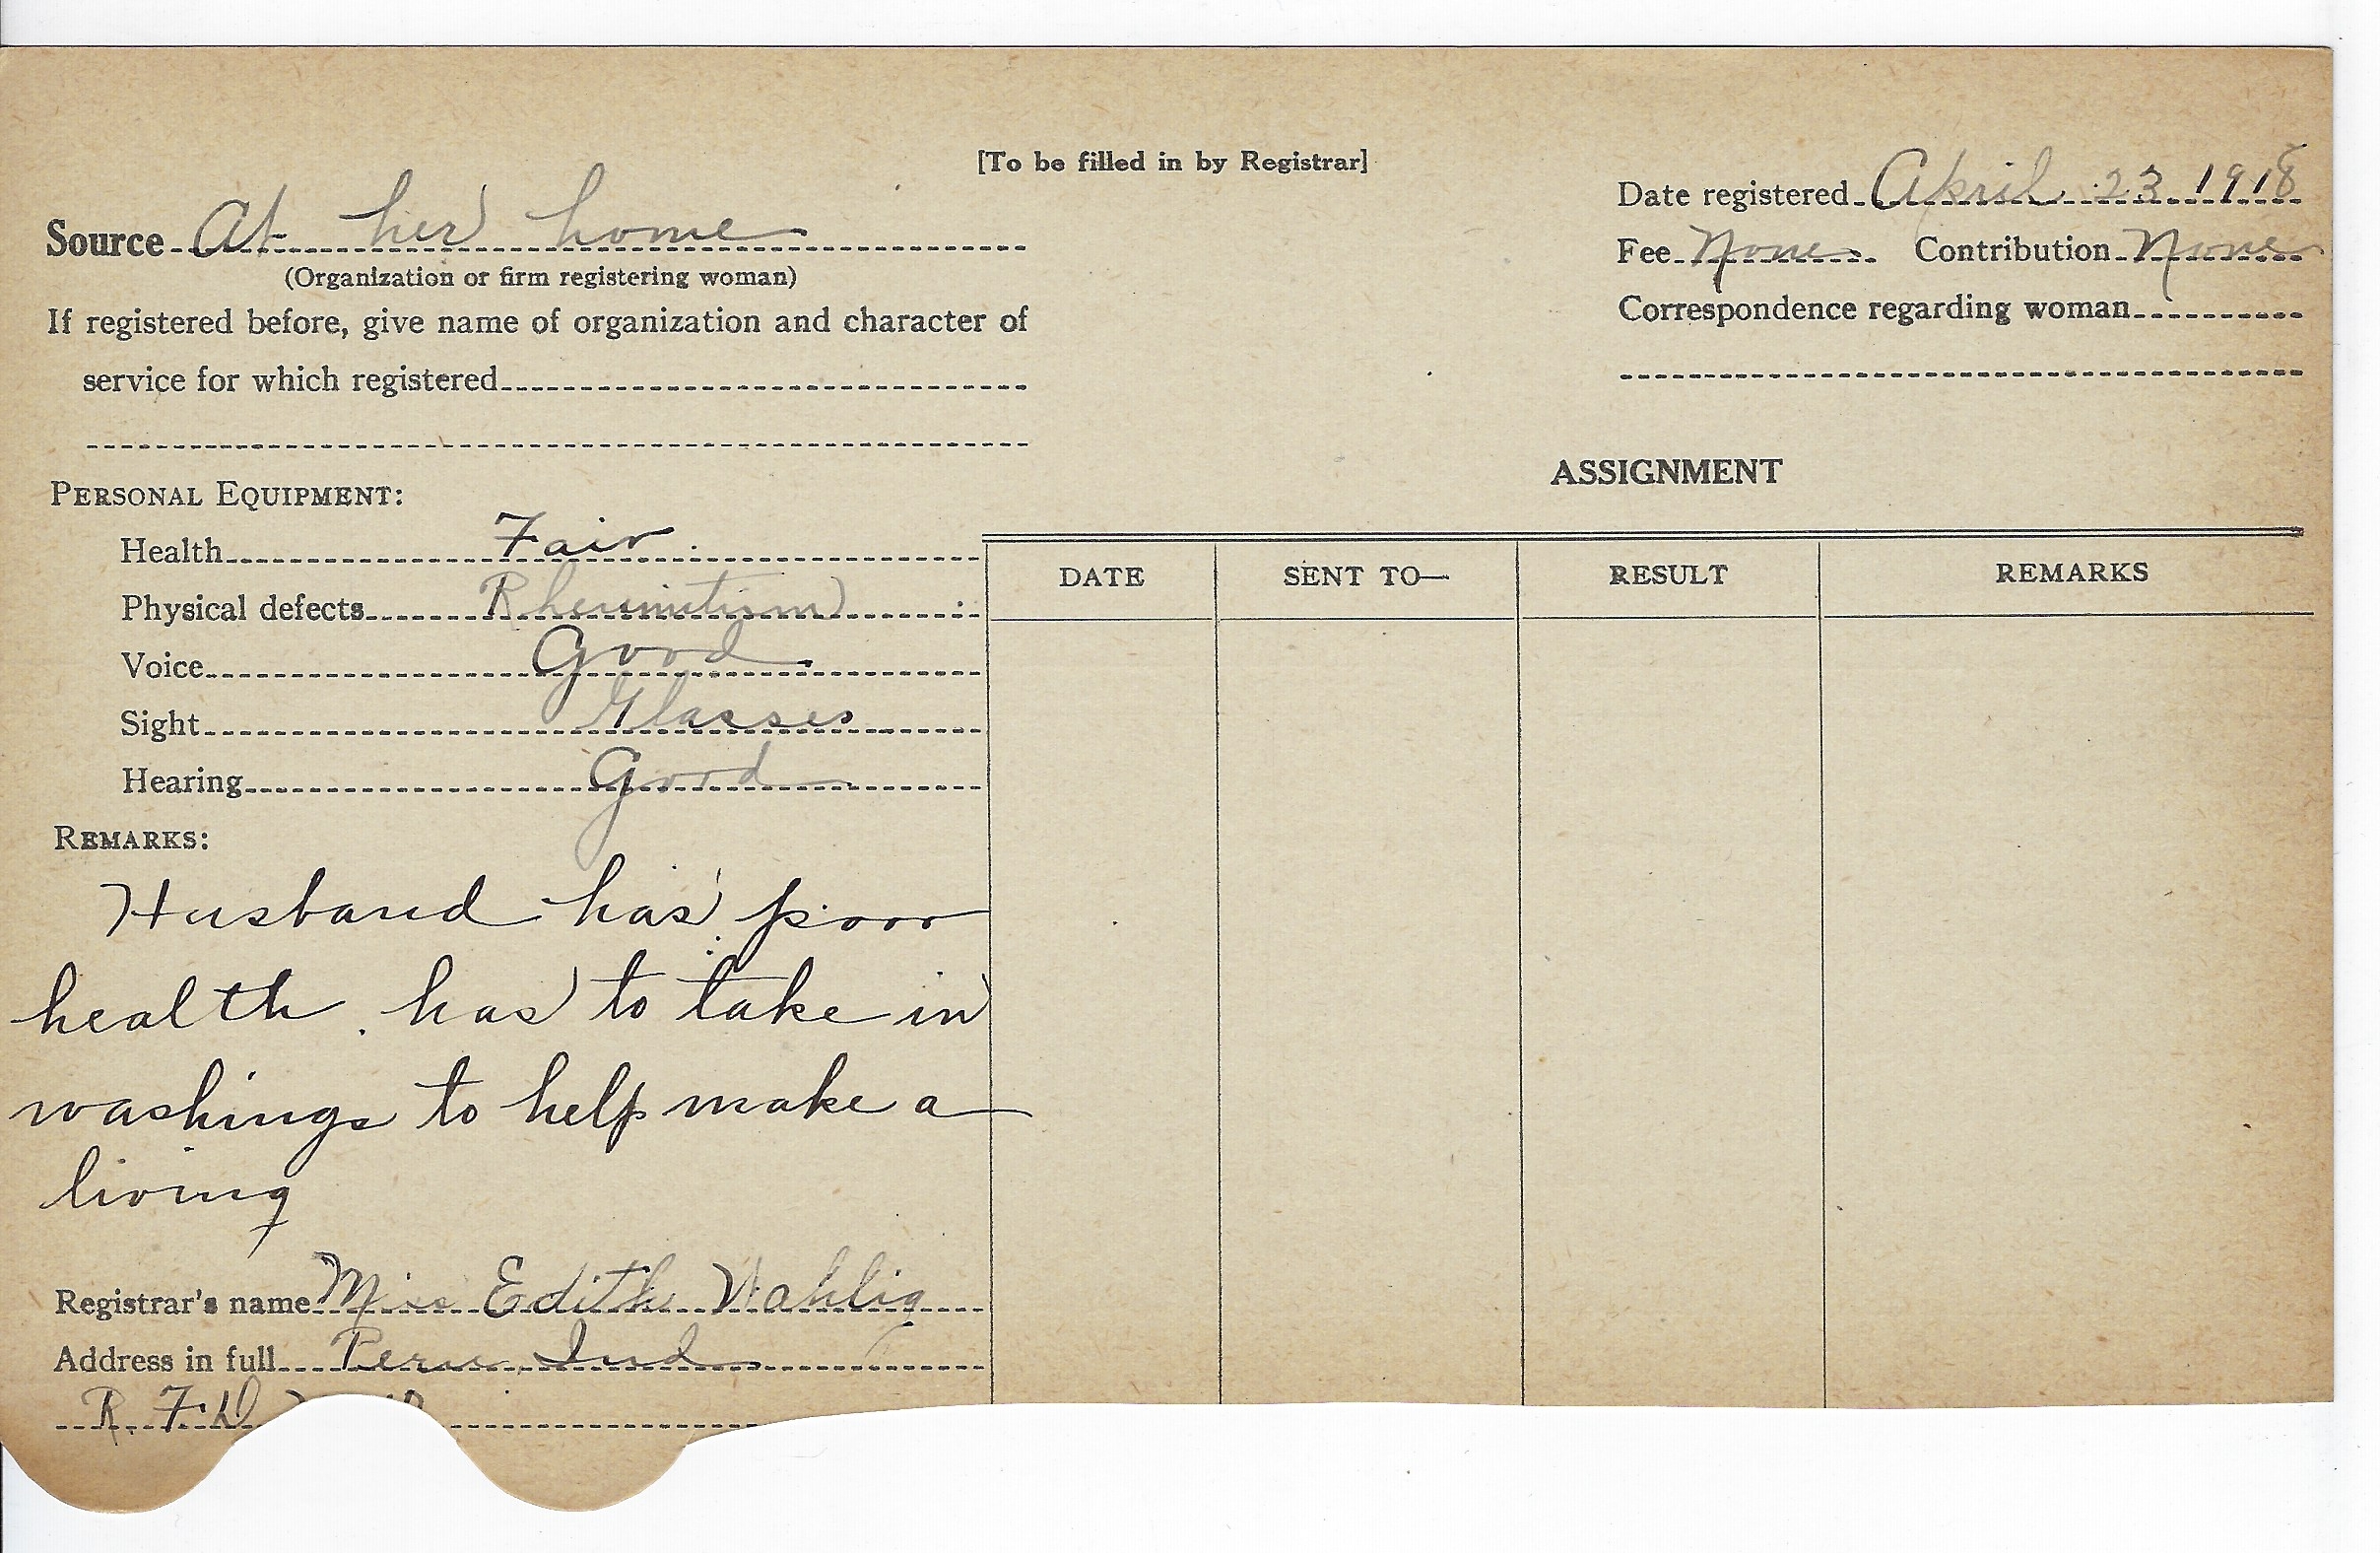 [To be filled in by Registrar]
Source At her home
(Organization or firm registering woman)
If registered before, give name of organization and character of
service for which registered
Date registered April 23 1918
Fee None Contribution None
Correspondence regarding woman
PERSONAL EQUIPMENT:
Health Fair
Physical defects Rheumitism
Voice Good
Sight Glasses
Hearing Good
REMARKS:
Husband has poor
health. has to take in
washings to help make a
living
Registrar's name Miss Edith Wahlig
Address in full Peru, Ind
R. F. D.
ASSIGNMENT
DATE SENT TO— RESULT REMARKS